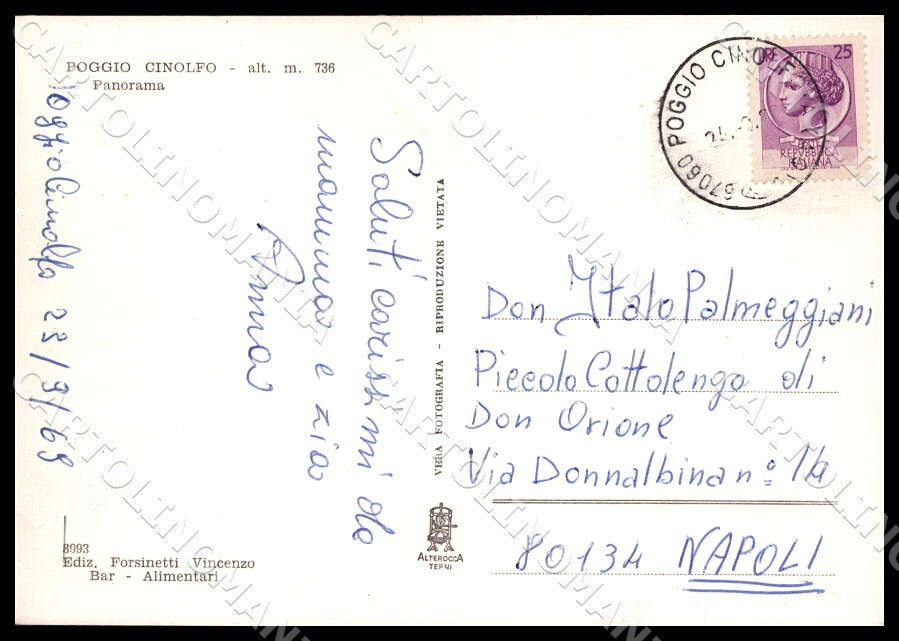 POGGIO CINOLFO - alt. m. 736
Panorama
Poggio Cinolfo 23/9/69
Saluti carissimi da
mamma e zia
Anna
VERA FOTOGRAFIA - RIPRODUZIONE VIETATA
LIRE 25
POSTE
REPVBBLICA
ITALIANA
67060 POGGIO CINOLFO
24.9.
Don Italo Palmeggiani
Piccolo Cottolengo di
Don Orione
Via Donnalbina n° 14
80134 NAPOLI
ALTEROCCA
TERNI
8993
Ediz. Forsinetti Vincenzo
Bar - Alimentari
CARTOLINOMANIA